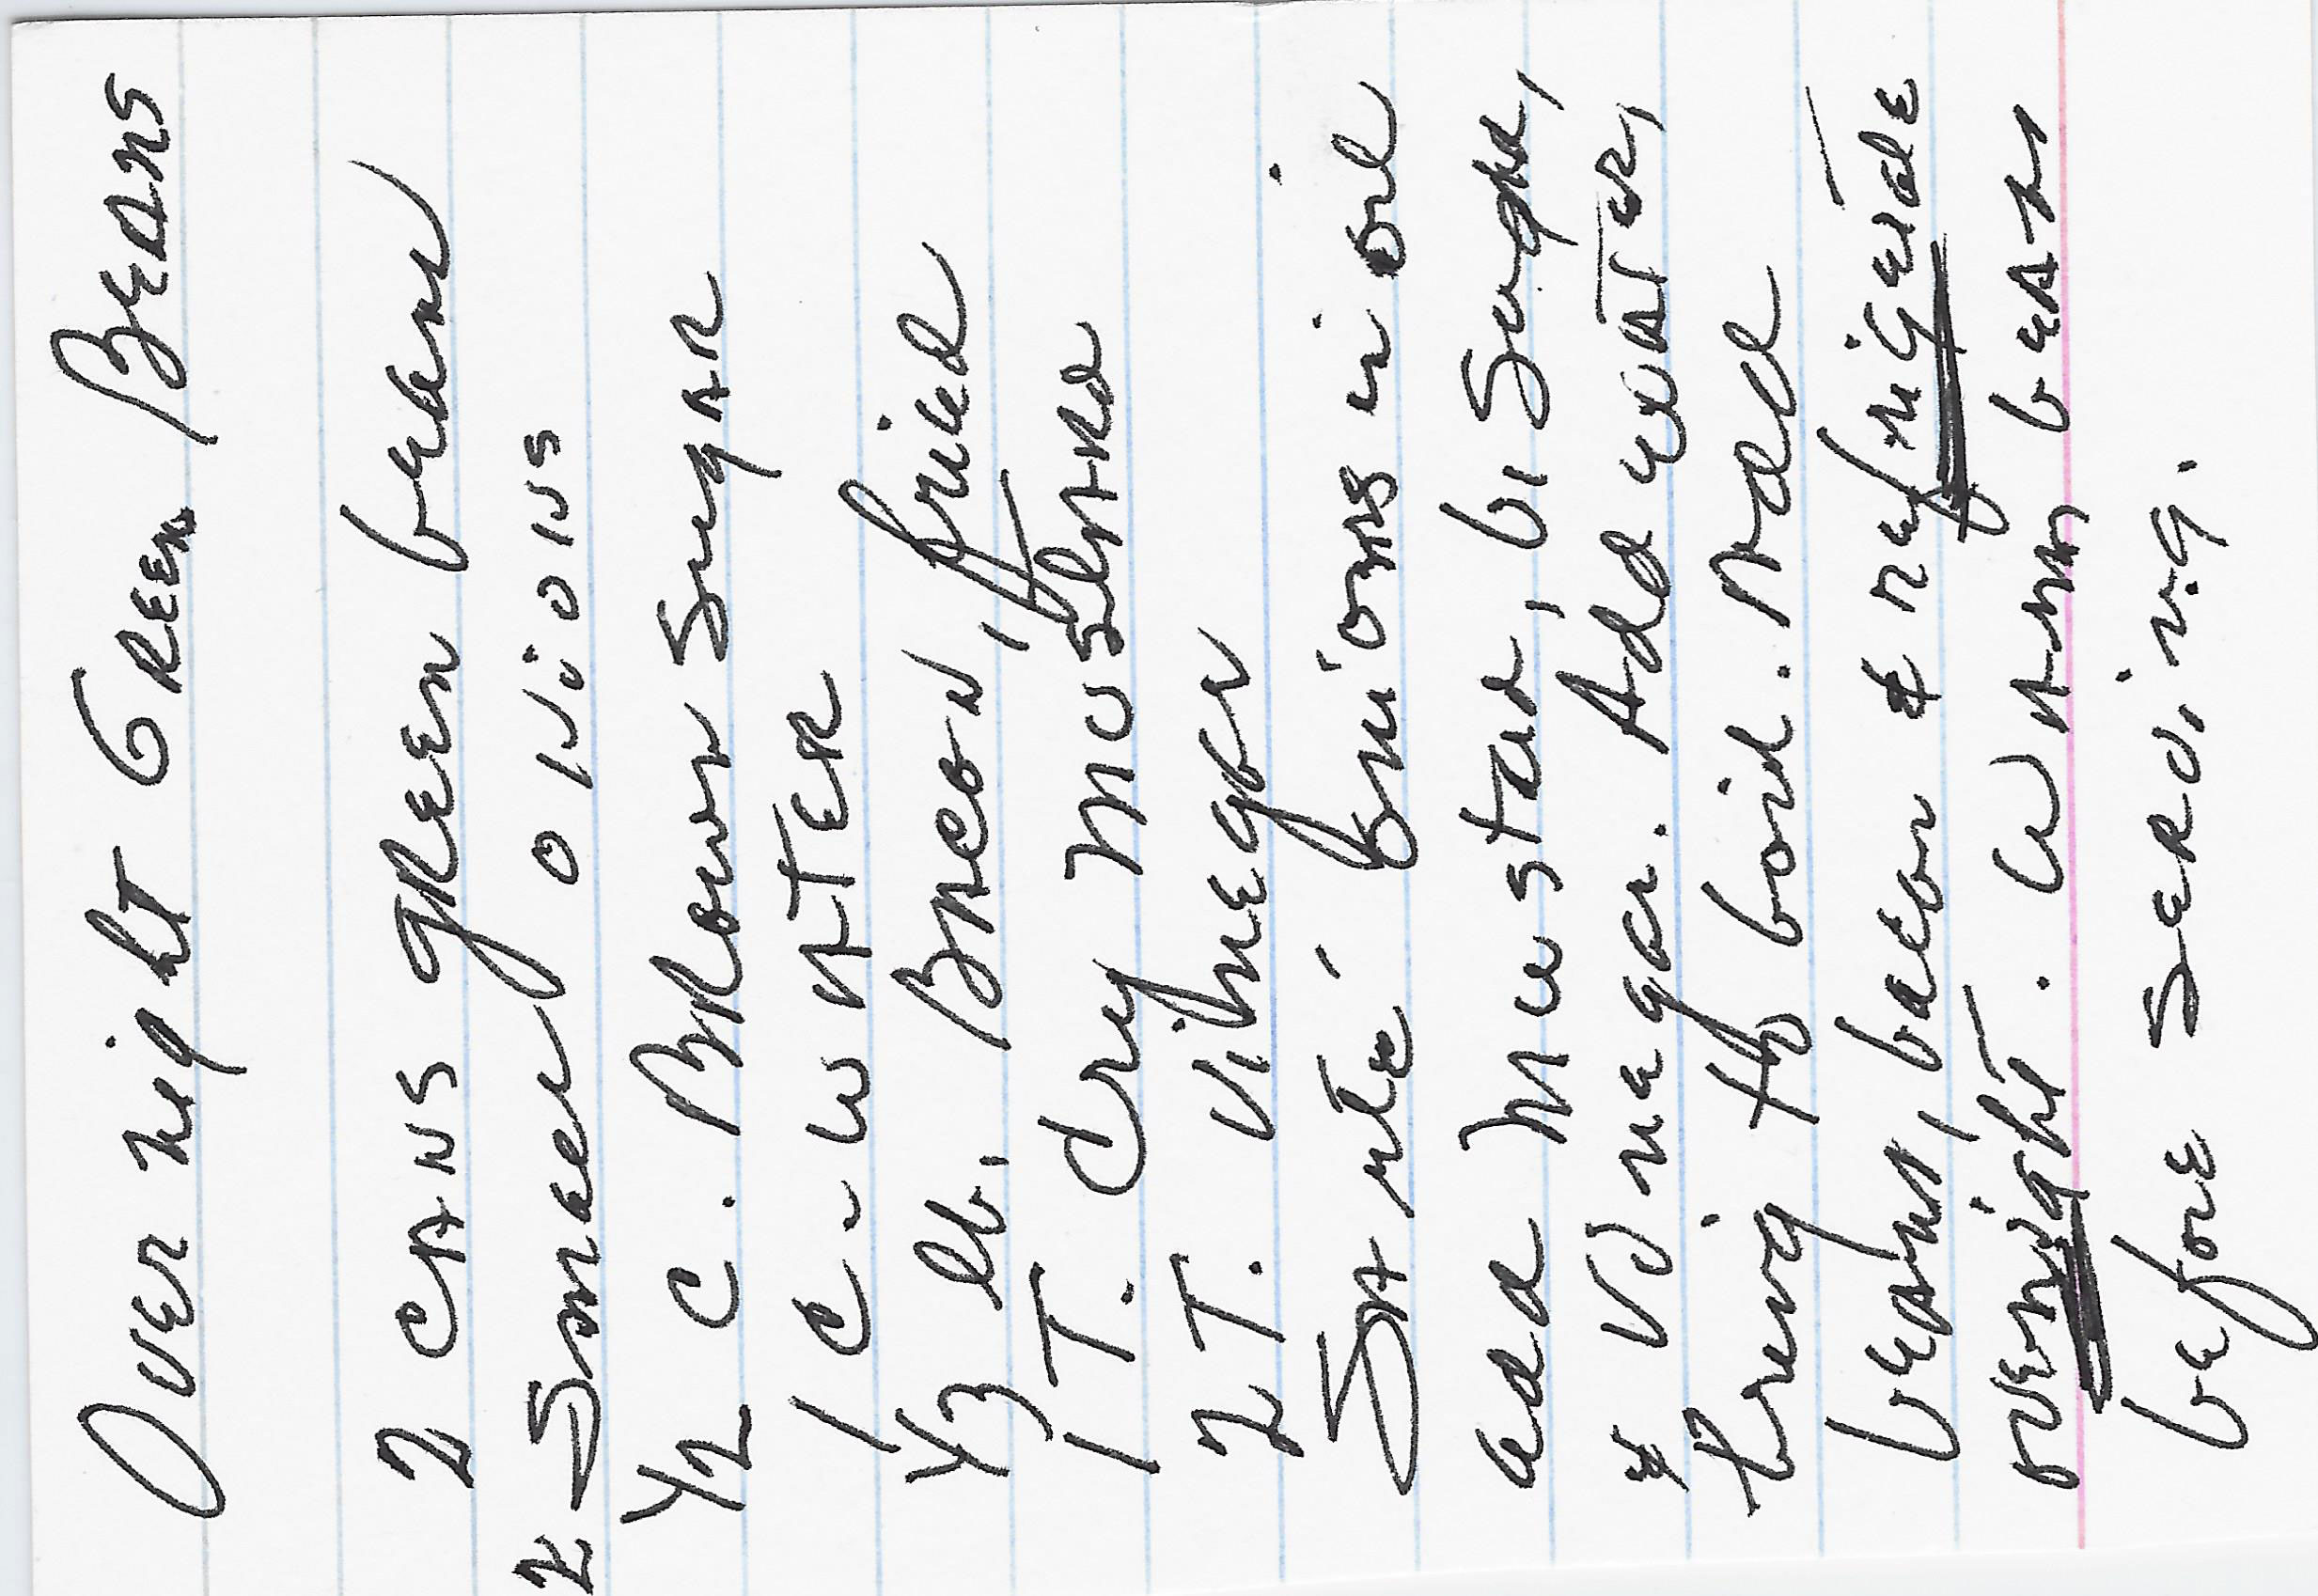 Over night Green Beans
2 cans green beans
2 Small onions
1/2 c. Brown Sugar
1 c. water
1/3 lb. Bacon, fried
1 T. dry mustard
2 T. vinegar
Sauté onions in oil
add mustard, br Sugar,
& vinegar. Add water,
bring to boil. Add
beans, bacon & refrigerate
overnight. Warm
before serving.